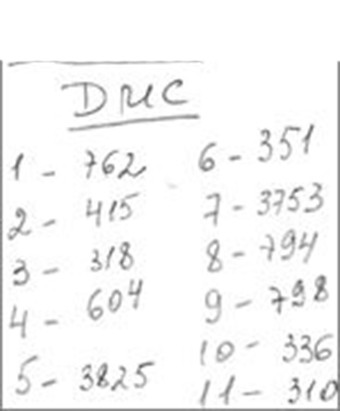 DMC
1 - 762
2 - 415
3 - 318
4 - 604
5 - 3825
6 - 351
7 - 3753
8 - 794
9 - 798
10 - 336
11 - 310